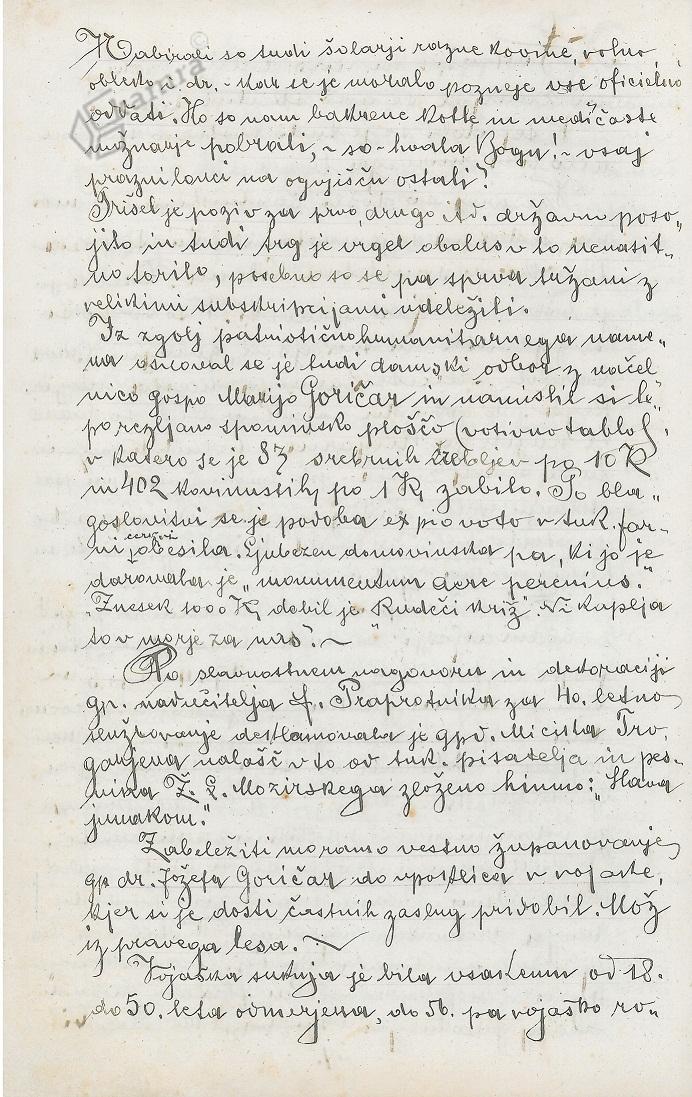 Nabirali so tudi šolarji razne kovine, volno,
obleko i. dr. - kar se je moralo pozneje vse oficielno
oddati. Ko so nam bakrene kotle in medičaste
možnarje pobrali, - so - hvala Bogu! - vsaj
prazni lonci na ognjišču ostali?
Prišel je poziv za prvo, drugo itd. državno poso„
jilo in tudi trg je vrgel obolus v to nenasit„
no torilo, posebno so se pa sprva tržani z
velikimi subskripcijami udeležili.
Iz zgolj patriotično humanitarnega name„
na osnoval se je tudi damski odbor z načel
nico gospo Marijo Goričar in namislil si le„
po rezljano spominsko ploščo (votivno tablo),
v katero se je 87 srebrnih žrebljev po 10 K
in 402 kovinustih po 1 K, zabilo. Po bla„
goslovitvi se je podoba ex pio voto v tuk. far„
ni cerkvi obesila. Ljubezen domovinska pa, ki jo je
darovala je „monumentum aere perenius."
„Znesek 1000 K, dobil je „Rudeči križ". Ni kaplja
to v morje za nas?. ~
Po slavnostnem nagovoru in dekoraciji
gp. nadučitelja f. Praprotnika za 40. letno
službovanje deklamovala je gpd. Micika Tro„
gavjena nalašč v to od tuk. pisatelja in pes„
nika Ž. Š. Mozirskega zloženo himno: „Slava
junakom."
Zabeležiti moramo vestno županovanje
gp dr. Jožefa Goričar do vpoklica v vojaste,
kjer si je dosti častnih zaslug pridobil. Mož
iz pravega lesa. ~
Vojaška suknja je bila vsakemu od 18.
do 50. leta odmerjena, do 56. pa vojaško ro„